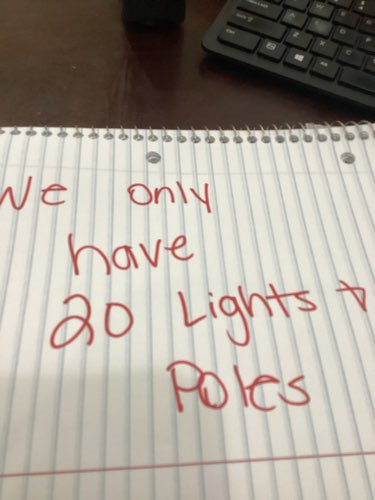 We only
have
20 Lights +
Poles